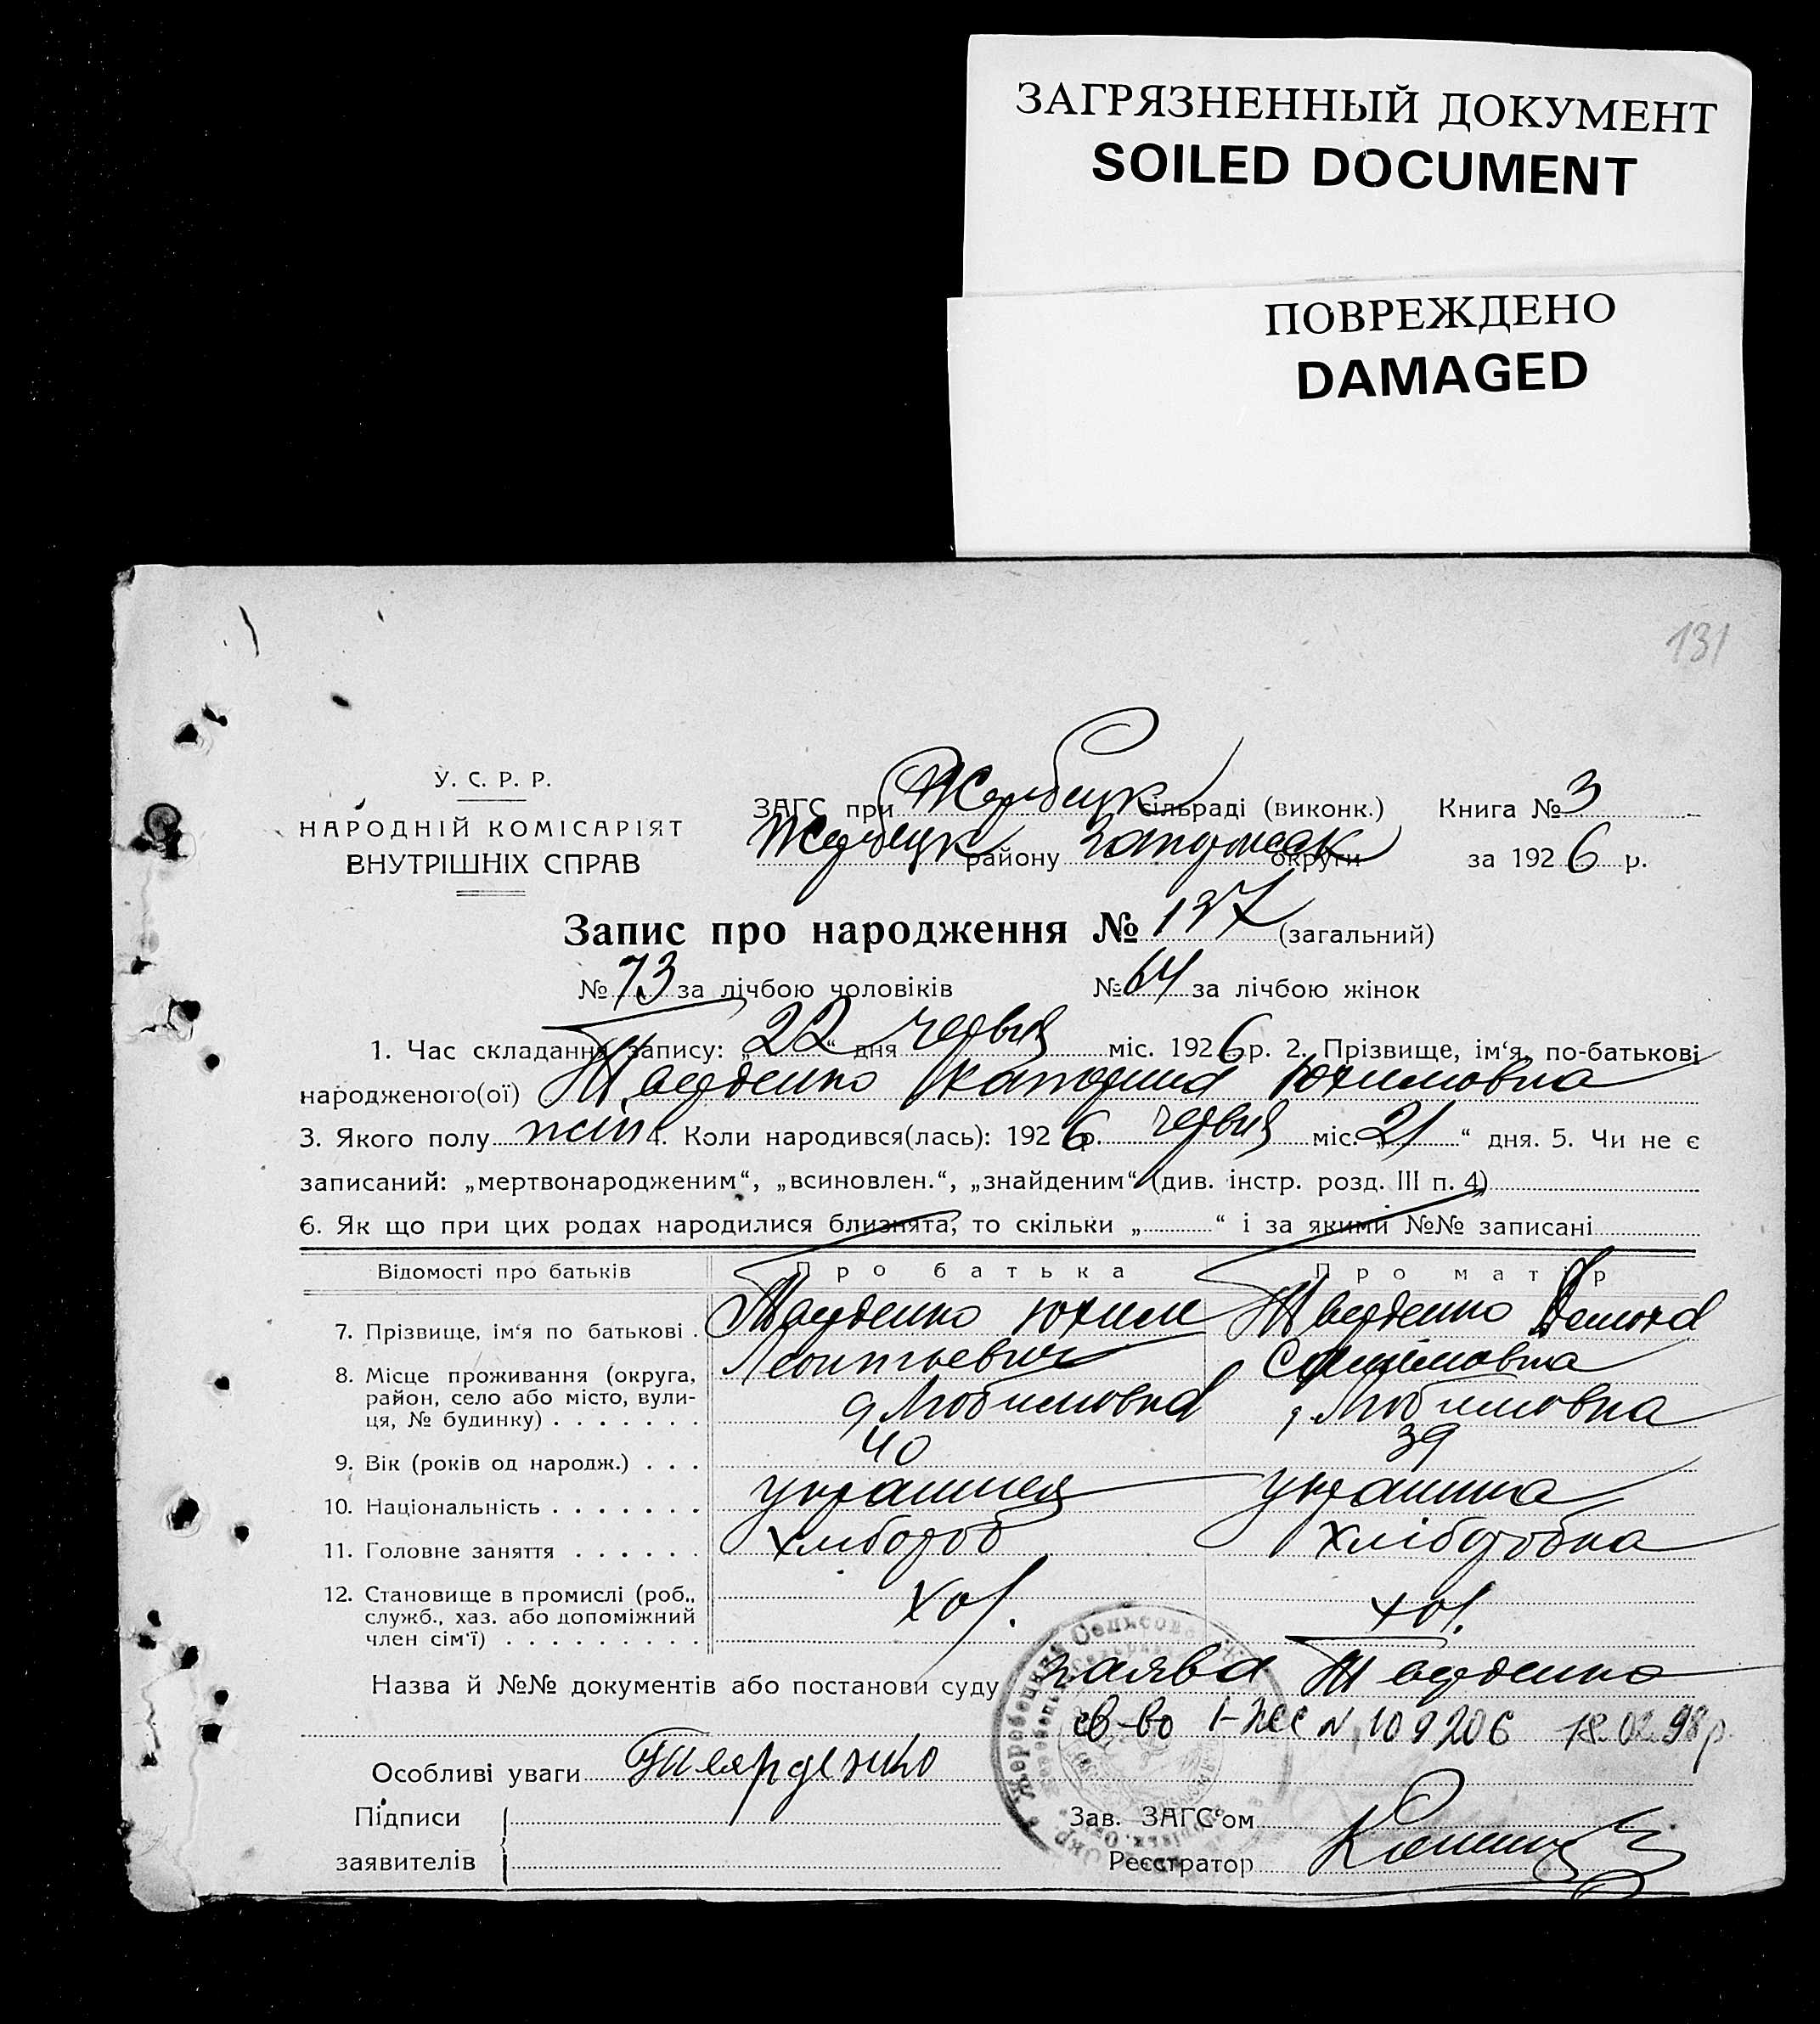 ЗАГРЯЗНЕННЫЙ ДОКУМЕНТ
SOILED DOCUMENT
ПОВРЕЖДЕНО
DAMAGED
131
У. С. Р. Р.
НАРОДНІЙ КОМІСАРІЯТ
ВНУТРІШНІХ СПРАВ
ЗАГС при Жеребецк сільраді (виконк.) Книга № 3
Жеребецк району Запорожск округи за 1926 р.
Запис про народження № 137 (загальний)
№ 73 за лічбою чоловіків № 64 за лічбою жінок
1. Час складання запису: „22“ дня червня міс. 1926 р. 2. Прізвище, ім‘я, по-батькові
народженого(ої) Катерина Юхимовна
3. Якого полу жін 4. Коли народився(лась): 1926 р. червня міс. „21“ дня. 5. Чи не є
записаний: „мертвонародженим“, „всиновлен.“, „знайденим“ (див. інстр. розд. III п. 4)
6. Як що при цих родах народилися близнята, то скільки „ “ і за якими №№ записані
Відомості про батьків Про батька Про матір
7. Прізвище, ім‘я по батькові . Юхим
Леонтьевич
8. Місце проживання (округа,
район, село або місто, вули-
ця, № будинку) . . . . . . . Любимовка Любимовка
9. Вік (років од народж.) . . . 40 39
10. Національність . . . . . . . українец українка
11. Головне заняття . . . . . . хлібороб хліборобка
12. Становище в промислі (роб.,
служб., хаз. або допоміжний
член сім‘ї) . . . . . . . . .
Назва й №№ документів або постанови суду заява
св-во I-ЖС № 109206 18.02.98р.
Особливі уваги
Підписи
заявителів
Зав. ЗАГС‘ом
Реєстратор